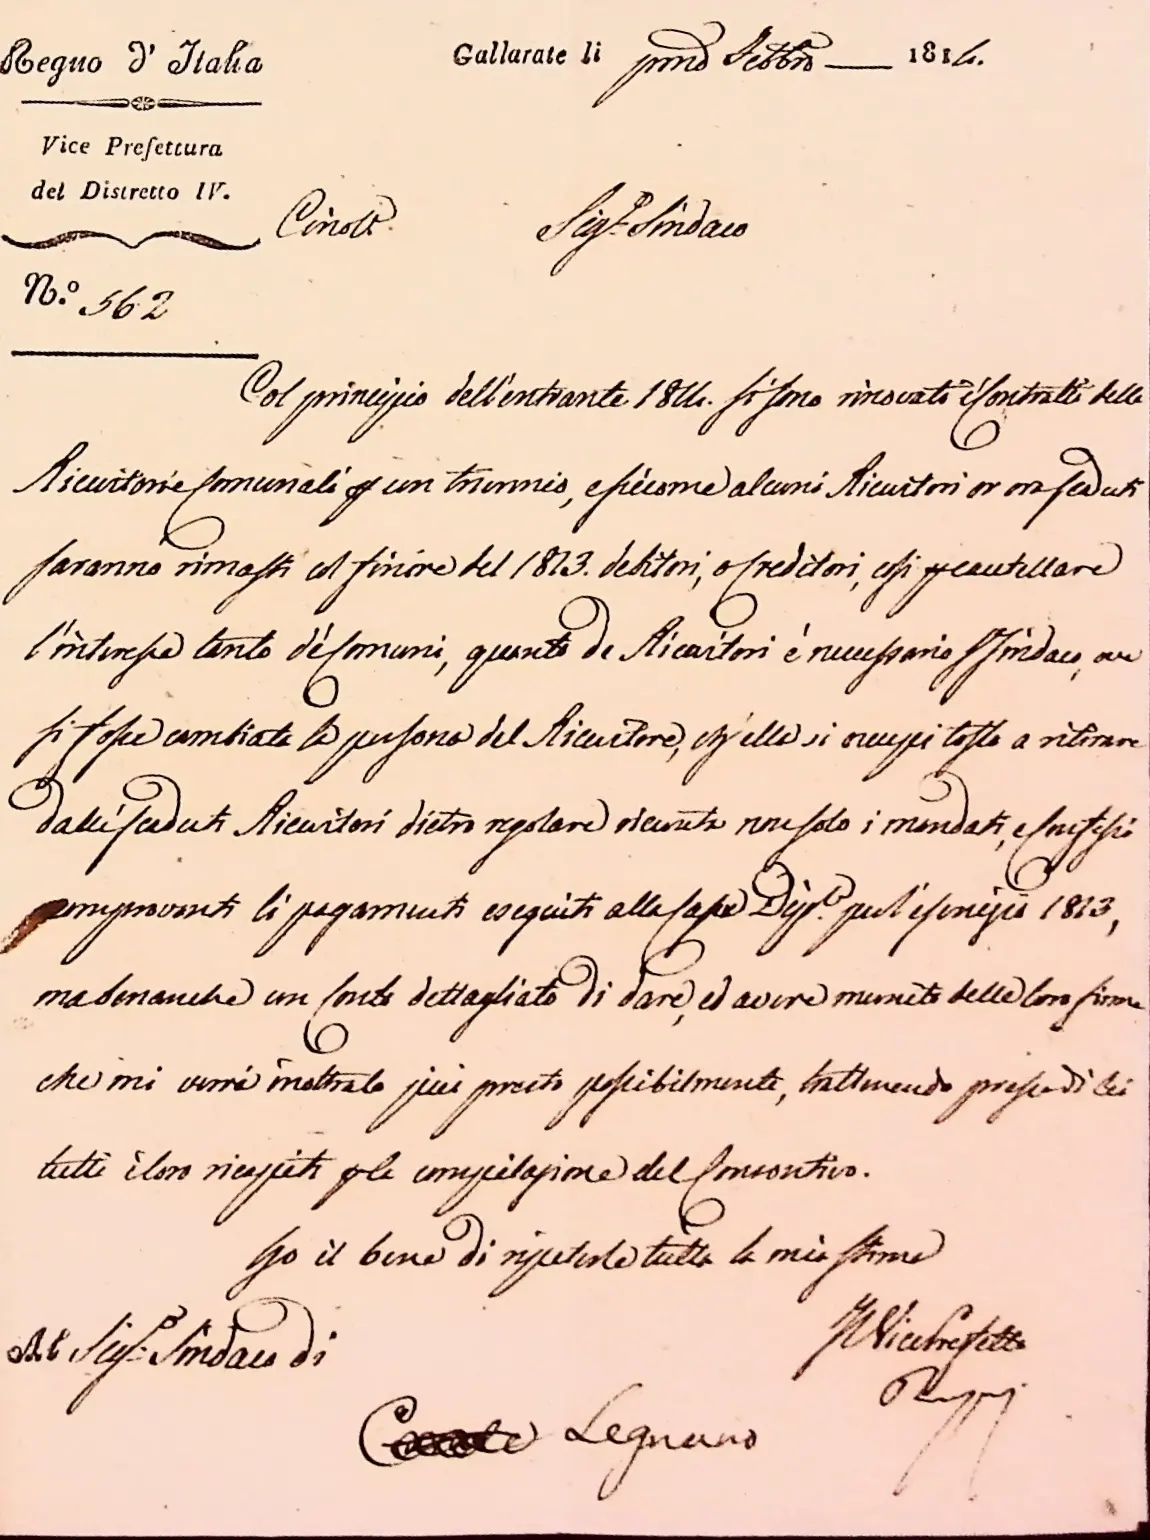 Regno d'Italia
Gallarate li primo Febbro 1814.
Vice Prefettura
del Distretto IV.
Circol.e
Sig.r Sindaco
N.o 562
Col principio dell'entrante 1814. si sono rinovati i Contratti delle
Ricevitorie Comunali per un triennio, e siccome alcuni Ricevitori or ora scaduti
saranno rimasti col finire del 1813. debitori, o Creditori, così per cautellare
l'interesse tanto de' Comuni, quanto de Ricevitori è necessario S.r Sindaco, ove
si fosse cambiata la persona del Ricevitore, ch'ella si occupi tosto a ritirare
dalli scaduti Ricevitori dietro regolare ricevuta non solo i mandati, e Confessi
comprovanti li pagamenti eseguiti alla Cassa Dip.le per l'esercizio 1813,
ma benanche un Conto dettagliato di dare, ed avere munito delle loro firme
che mi verrà inoltrato più presto possibilmente, trattenendo presso di lei
tutti i loro ricapiti per la compilazione del Consontivo.
Ho il bene di ripeterle tutta la mia stima
Al Sig.r Sindaco di
Il Vice Prefetto
Legnano